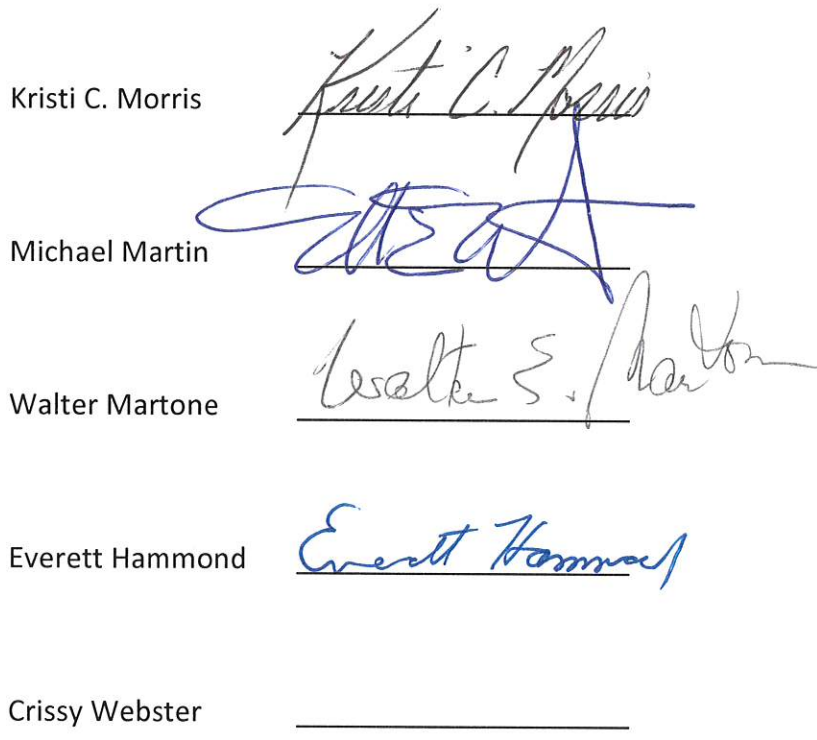 Kristi C. Morris Kristi C. Morris
Michael Martin
Walter Martone Walter E. Martone
Everett Hammond Everett Hammond
Crissy Webster